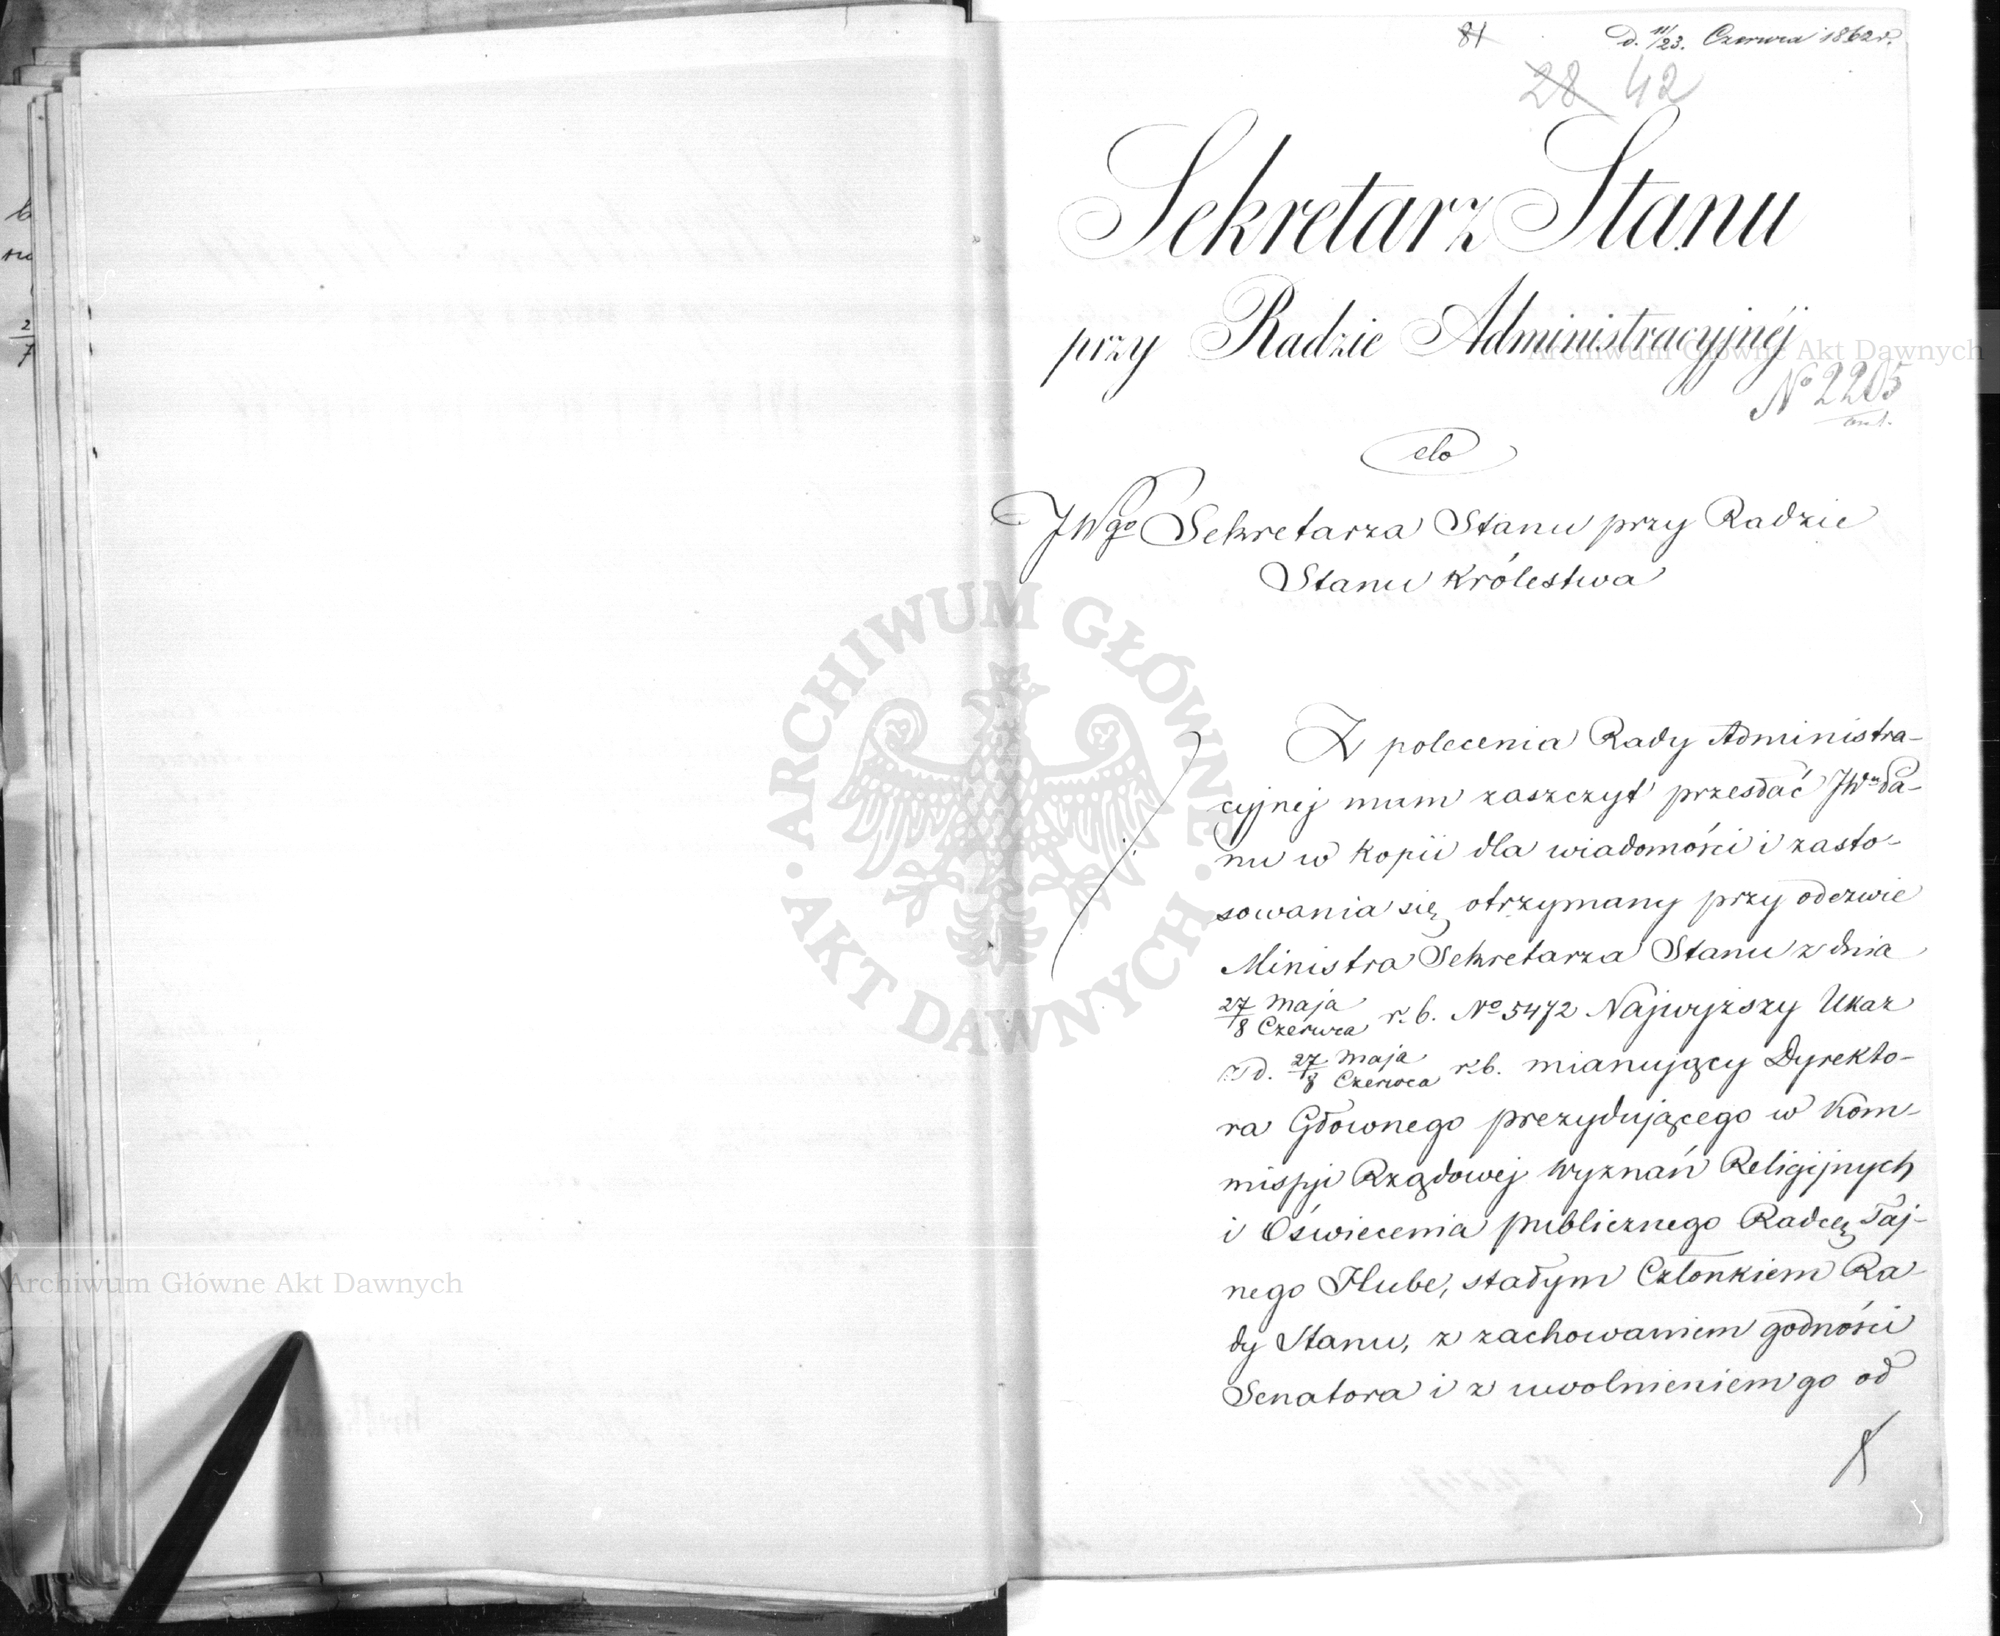 81
D. 11/23. Czerwca 1862 r.
28 42
Sekretarz Stanu
przy Radzie Administracyjnéj
No 2205
do
JWgo Sekretarza Stanu przy Radzie
Stanu Królestwa
Z polecenia Rady Administra-
cyjnej mam zaszczyt przesłać JWu Pa-
nu w kopii dla wiadomości i zasto-
sowania się otrzymany przy odezwie
Ministra Sekretarza Stanu z dnia
27 Maja / 8 Czerwca r. b. No 5472 Najwyższy Ukaz
z d. 27 Maja / 8 Czerwca r. b. mianujący Dyrekto-
ra Głównego prezydującego w Kom-
missyi Rządowej Wyznań Religijnych
i Oświecenia publicznego Radcę Taj-
nego Hube, stałym Członkiem Ra-
dy Stanu, z zachowaniem godności
Senatora i z uwolnieniem go od
ARCHIWUM GŁÓWNE
AKT DAWNYCH
Archiwum Główne Akt Dawnych
Archiwum Główne Akt Dawnych